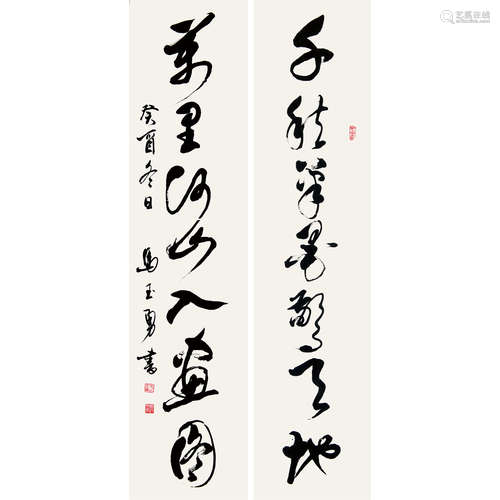 千秋笔墨惊天地
萬里河山入画图
癸酉冬日 馬玉勇書